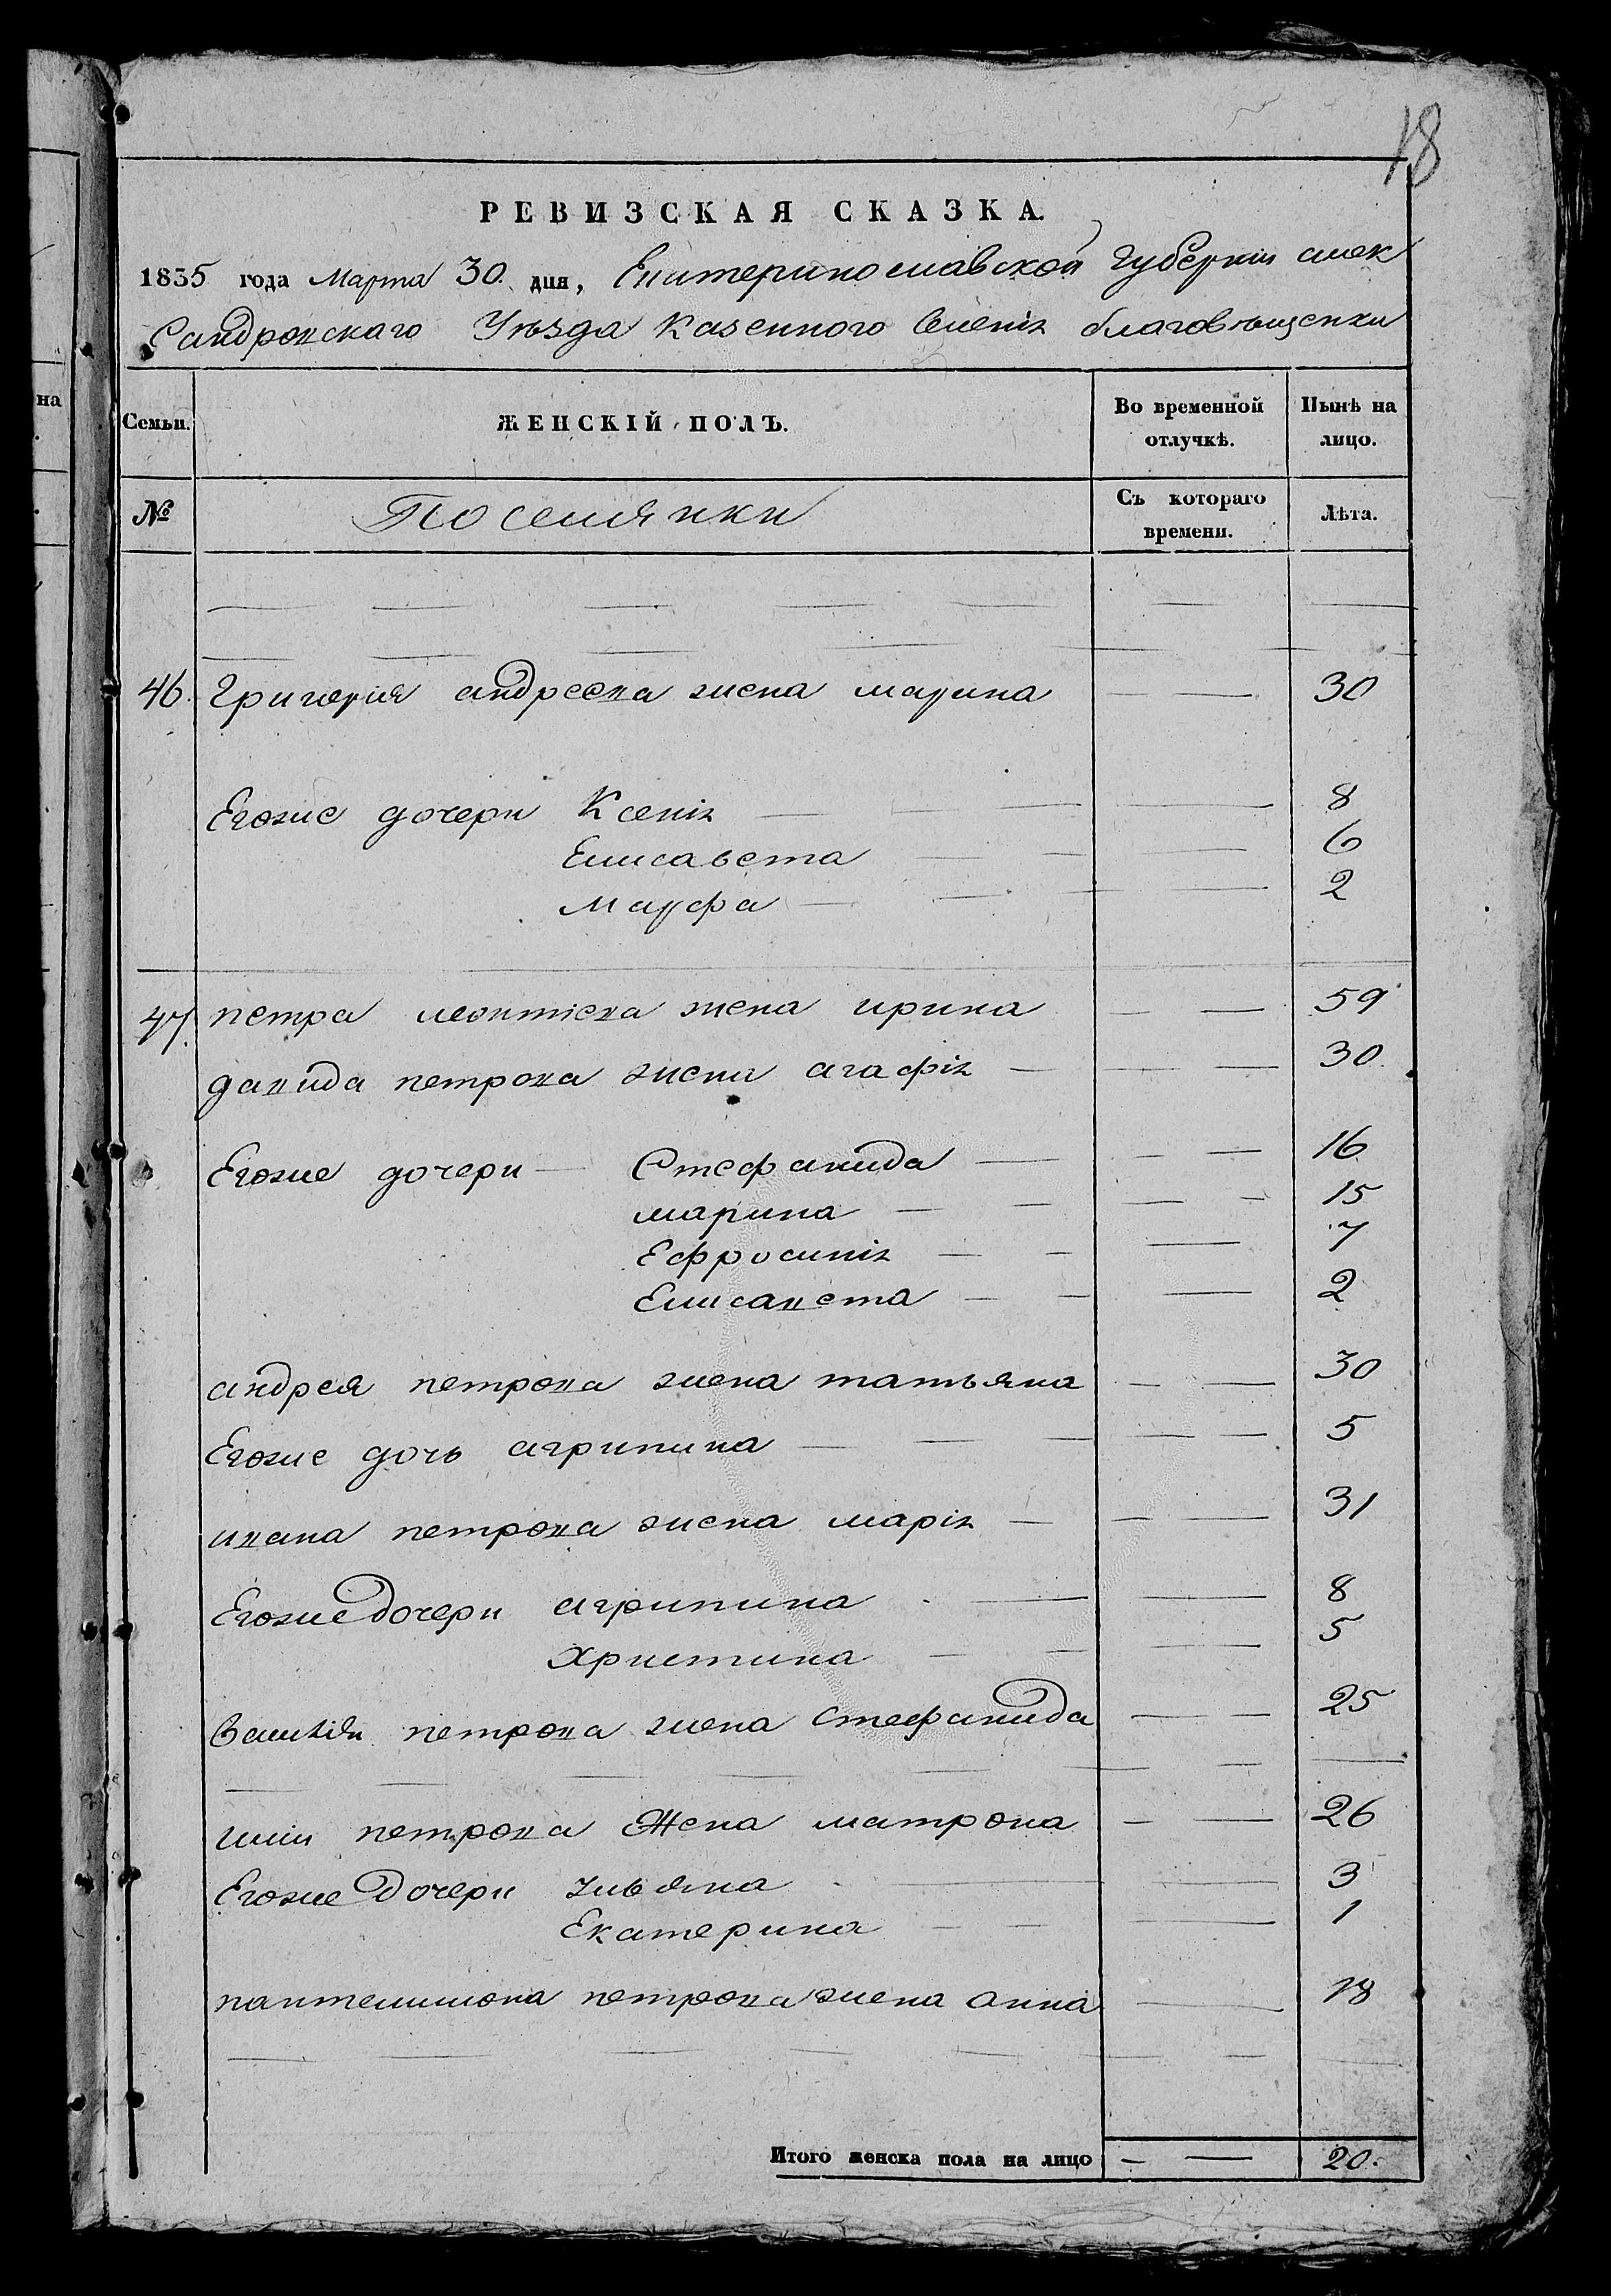 18
РЕВИЗСКАЯ СКАЗКА.
1835 года Марта 30. дня, Екатеринославской Губерніи Алек
Сандровскаго Уѣзда Казенного Селенія благовѣщенки
на
Семьи. ЖЕНСКІЙ ПОЛЪ. Во временной отлучкѣ. Нынѣ на лицо.
№ Поселянки Съ котораго времени. Лѣта.
46. Григорія андреева жена марина — — 30
Егоже дочери Ксенія — — 8
Елисавета — — 6
Марфа — — 2
47. петра леонтіева жена ирина — — 59
давида петрова жена агафія — — 30.
Егоже дочери — Стефанида — — 16
марина — — 15
Ефросинія — — 7
Елисавета — — 2
андрея петрова жена татьяна — — 30
Егоже дочь агрипина — — 5
ивана петрова жена марія — — 31
Егоже дочери агрипина — — 8
Христина — — 5
Василія петрова жена Стефанида — — 25
иліи петрова Жена матрона — — 26
Егоже Дочери ульяна — — 3
Екатерина — — 1
пантелимона петрова жена анна — 18
Итого женска пола на лицо — — 20.